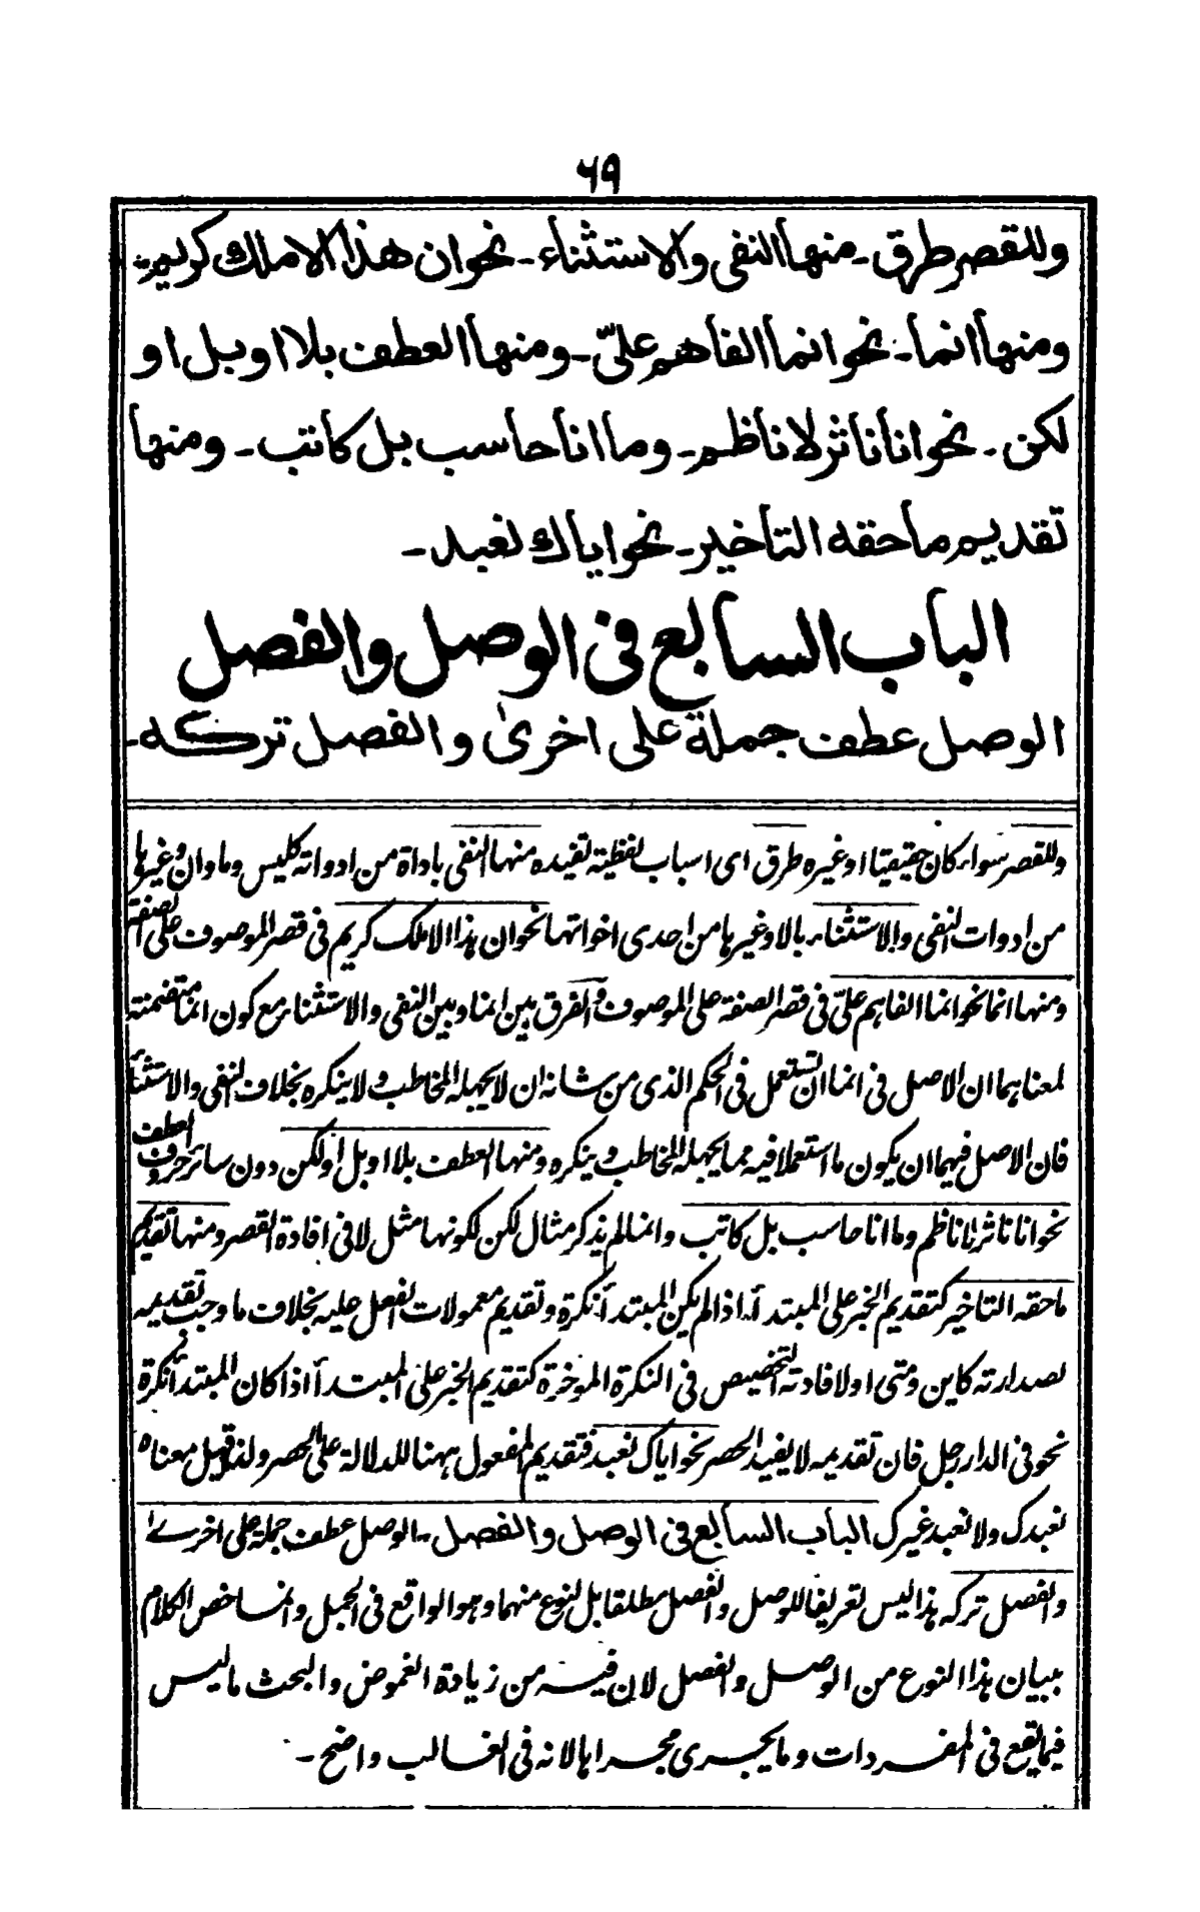 ٦٩
وللقصر طرق ـ منها النفى والاستثناء ـ نحو ان هذا الا ملك كريم ـ
ومنها انما ـ نحو انما الفاهم علىّ ـ ومنها العطف بلا او بل او
لكن ـ نحو انا ناثر لا ناظم ـ وما انا حاسب بل كاتب ـ ومنها
تقديم ما حقه التاخير ـ نحو اياك نعبد ـ
الباب السابع فى الوصل والفصل
الوصل عطف جملة على اخرىٰ والفصل تركه ـ
وللقصر سواء كان حقيقيا او غيره طرق اى اسباب لفظية تفيده منها النفى باداة من ادواته كليس وما وان وغيرها
من ادوات النفى والاستثناء بالا وغيرها من احدى اخواتها نحو ان هذا الا ملك كريم فى قصر الموصوف على الصفة
ومنها انما نحو انما الفاهم علىّ فى قصر الصفة على الموصوف والفرق بين انما وبين النفى والاستثناء مع كون انما متضمنة
لمعناهما ان الاصل فى انما ان تستعمل فى الحكم الذى من شانه ان لا يجهله المخاطب ولا ينكره بخلاف النفى والاستثناء
فان الاصل فيهما ان يكون ما استعملا فيه مما يجهله المخاطب وينكره ومنها العطف بلا او بل او لكن دون سائر حروف العطف
نحو انا ناثر لا ناظم وما انا حاسب بل كاتب وانما لم يذكر مثال لكن لكونها مثل لا فى افادة القصر ومنها تقديم
ما حقه التاخير كتقديم الخبر على المبتدأ اذا لم يكن المبتدأ نكرة وتقديم معمولات الفعل عليه بخلاف ما وجب تقديمه
لصدارته كاين ومتى او لافادته التخصيص فى النكرة الموخرة كتقديم الخبر على المبتدأ اذا كان المبتدأ نكرة
نحو فى الدار رجل فان تقديمه لا يفيد الحصر نحو اياك نعبد فتقديم المفعول ههنا للدلالة على الحصر ولذا قيل معناه
نعبدك ولا نعبد غيرك الباب السابع فى الوصل والفصل ـ الوصل عطف جملة على اخرے
والفصل تركه هذا ليس تعريفا للوصل والفصل مطلقا بل لنوع منهما وهو الواقع فى الجمل وانما خص الكلام
ببيان هذا النوع من الوصل والفصل لان فيه من زيادة الغموض والبحث ما ليس
فيما يقع فى المفردات وما يجرى مجراها لانه فى الغالب واضح ـ